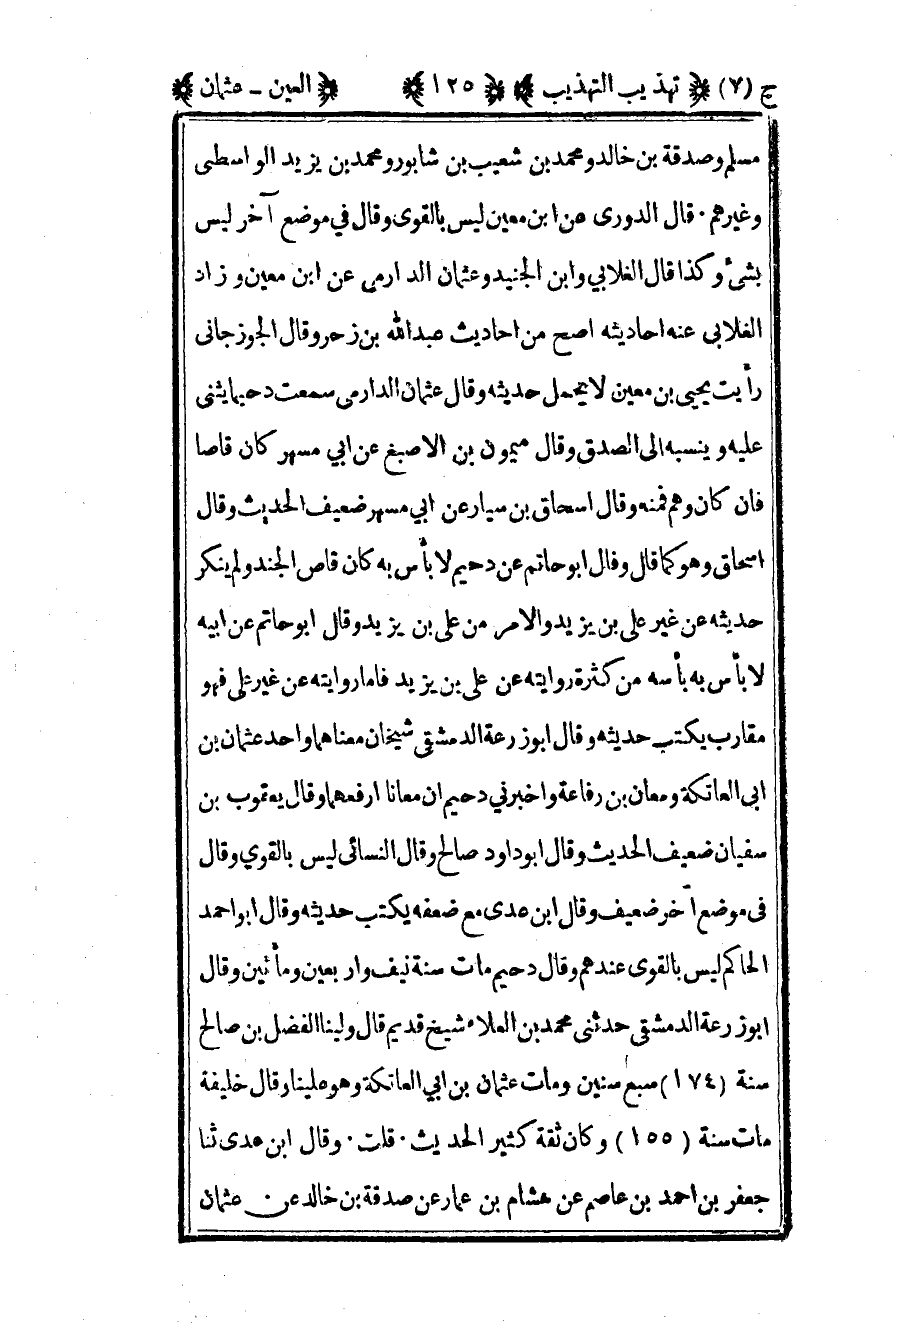 ج (٧) ﴿ تهذيب التهذيب ﴾ ﴿ ١٢٥ ﴾ ﴿ العين - عثمان ﴾
مسلم وصدقة بن خالد ومحمد بن شعيب بن شابور ومحمد بن يزيد الواسطى
وغيرهم ٠ قال الدورى عن ابن معين ليس بالقوى وقال في موضع آخر ليس
بشئ وكذا قال الغلابي وابن الجنيد وعثمان الدارمى عن ابن معين وزاد
الغلابى عنه احاديثه اصح من احاديث عبدالله بن زحر وقال الجوزجانى
رأيت يحيى بن معين لا يحمل حديثه وقال عثمان الدارمى سمعت دحيما يثنى
عليه وينسبه الى الصدق وقال ميمون بن الاصبغ عن ابي مسهر كان قاصا
فان كان وهم فمنه وقال اسحاق بن سيار عن ابي مسهر ضعيف الحديث وقال
اسحاق وهو كما قال وقال ابو حاتم عن دحيم لا بأس به كان قاص الجند ولم ينكر
حديثه عن غير على بن يزيد والامر من على بن يزيد وقال ابو حاتم عن ابيه
لا بأس به بأسه من كثرة روايته عن على بن يزيد فاما روايته عن غير على فهو
مقارب يكتب حديثه وقال ابو زرعة الدمشقي شيخان معناهما واحد عثمان بن
ابى العاتكة ومعان بن رفاعة واخبرني دحيم ان معانا ارفعهما وقال يعقوب بن
سفيان ضعيف الحديث وقال ابو داود صالح وقال النسائى ليس بالقوي وقال
فى موضع آخر ضعيف وقال ابن عدى مع ضعفه يكتب حديثه وقال ابو احمد
الحاكم ليس بالقوى عندهم وقال دحيم مات سنة نيف واربعين ومأتين وقال
ابو زرعة الدمشقى حدثنى محمد بن العلاء شيخ قديم قال ولينا الفضل بن صالح
سنة (١٧٤) سبع سنين ومات عثمان بن ابي العاتكة وهو علينا وقال خليفة
مات سنة (١٥٥) وكان ثقة كثير الحديث ٠ قلت ٠ وقال ابن عدى ثنا
جعفر بن احمد بن عاصم عن هشام بن عمار عن صدقة بن خالد عن عثمان